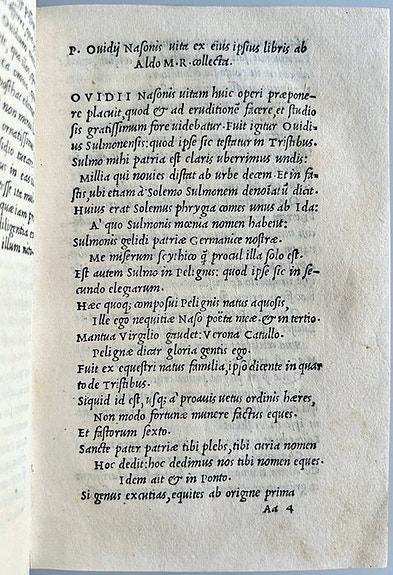 P. Ovidij Nasonis uita ex eius ipsius libris ab
Aldo M. R. collecta.
OVIDII Nasonis uitam huic operi præpone-
re placuit, quod & ad eruditionē facere, et studio
sis gratissimum fore uidebatur. Fuit igitur Ouidi-
us Sulmonensis: quod ipse sic testatur in Tristibus.
Sulmo mihi patria est claris uberrimus undis:
Millia qui nouies distat ab urbe decem. Et in fa-
stis, ubi etiam à Solemo Sulmonem denoīatū dicit.
Huius erat Solemus phrygia comes unus ab Ida:
A' quo Sulmonis mœnia nomen habent:
Sulmonis gelidi patriæ Germanice nostræ.
Me miserum scythico q̄ procul illa solo est.
Est autem Sulmo in Pelignis: quod ipse sic in se-
cundo elegiarum.
Hæc quoq; composui Pelignis natus aquosis,
Ille ego nequitiæ Naso poëta meæ. & in tertio.
Mantua Virgilio gaudet: Verona Catullo.
Pelignæ dicar gloria gentis ego.
Fuit ex equestri natus familia, ipso dicente in quar
to de Tristibus.
Siquid id est, usq; à proauis uetus ordinis hæres,
Non modo fortunæ munere factus eques.
Et fastorum sexto.
Sancte pater patriæ tibi plebs, tibi curia nomen
Hoc dedit: hoc dedimus nos tibi nomen eques.
Idem ait & in Ponto.
Si genus excutias, equites ab origine prima
Aa 4